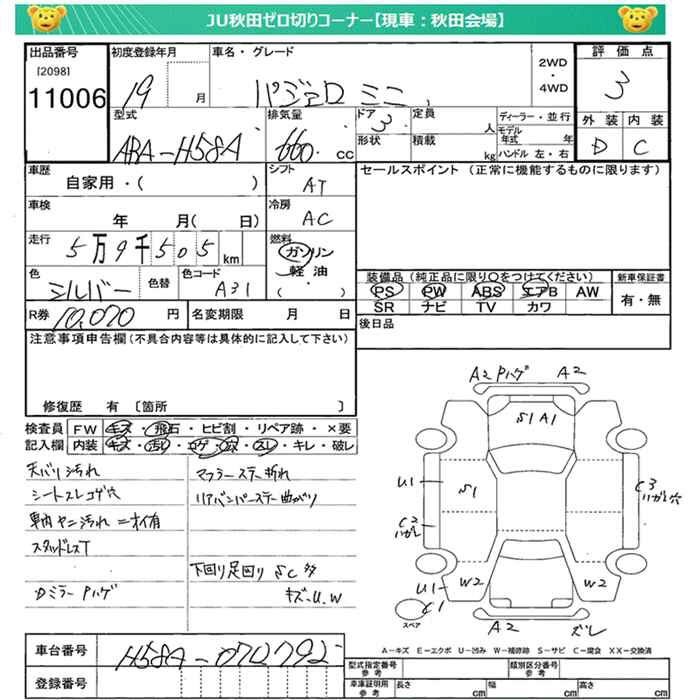 JU秋田ゼロ切りコーナー【現車：秋田会場】
出品番号 初度登録年月 車名・グレード 2WD・4WD 評価点
[2098]
11006 19 月 パジェロ ミニ 3
型式 排気量 ドア 定員 ディーラー・並行 外装 内装
ABA-H58A 660 cc 3 人 モデル年式 年 D C
形状 積載 kg ハンドル 左・右
車歴 シフト セールスポイント（正常に機能するものに限ります）
自家用・( ) AT
車検 冷房
年 月( 日) AC
走行 燃料
5万9千505km ガソリン
軽油
( )
色 色替 色コード 装備品（純正品に限り○をつけてください） 新車保証書
シルバー A31 PS PW ABS エアB AW 有・無
SR ナビ TV カワ
R券 10,070 円 名変期限 月 日 後日品
注意事項申告欄（不具合内容等は具体的に記入して下さい）
修復歴 有 〔箇所 〕
検査員 FW キズ・飛石・ヒビ割・リペア跡・×要
記入欄 内装 キズ・汚レ・コゲ・穴・スレ・キレ・破レ
天バリ汚れ マフラーステー折れ
シートスレコゲ穴 リアバンパーステー曲がり
車内ヤニ汚れ ニオイ有
スタッドレスT
下回り足回り SC多
Dミラー Pハゲ キズ-U.W
A2 Pハゲ A2
S1 A1
U1 S1 C3
ハガレ穴
C2
ハガレ
U1 W2 W2
C1
スペア A2 ズレ
A－キズ E－エクボ U－凹み W－補修跡 S－サビ C－腐食 X－交換済
車台番号 H58A-0712792
登録番号
型式指定番号 参考 類別区分番号 参考
車庫証明用 参考 長さ cm 幅 cm 高さ cm